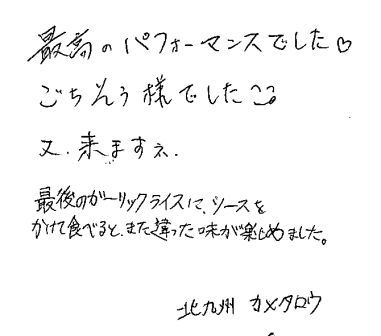 最高のパフォーマンスでした♡
ごちそう様でした
又.来ますネ.
最後のガーリックライスに、ソースを
かけて食べると、また違った味が楽しめました。
北九州 カメタロウ